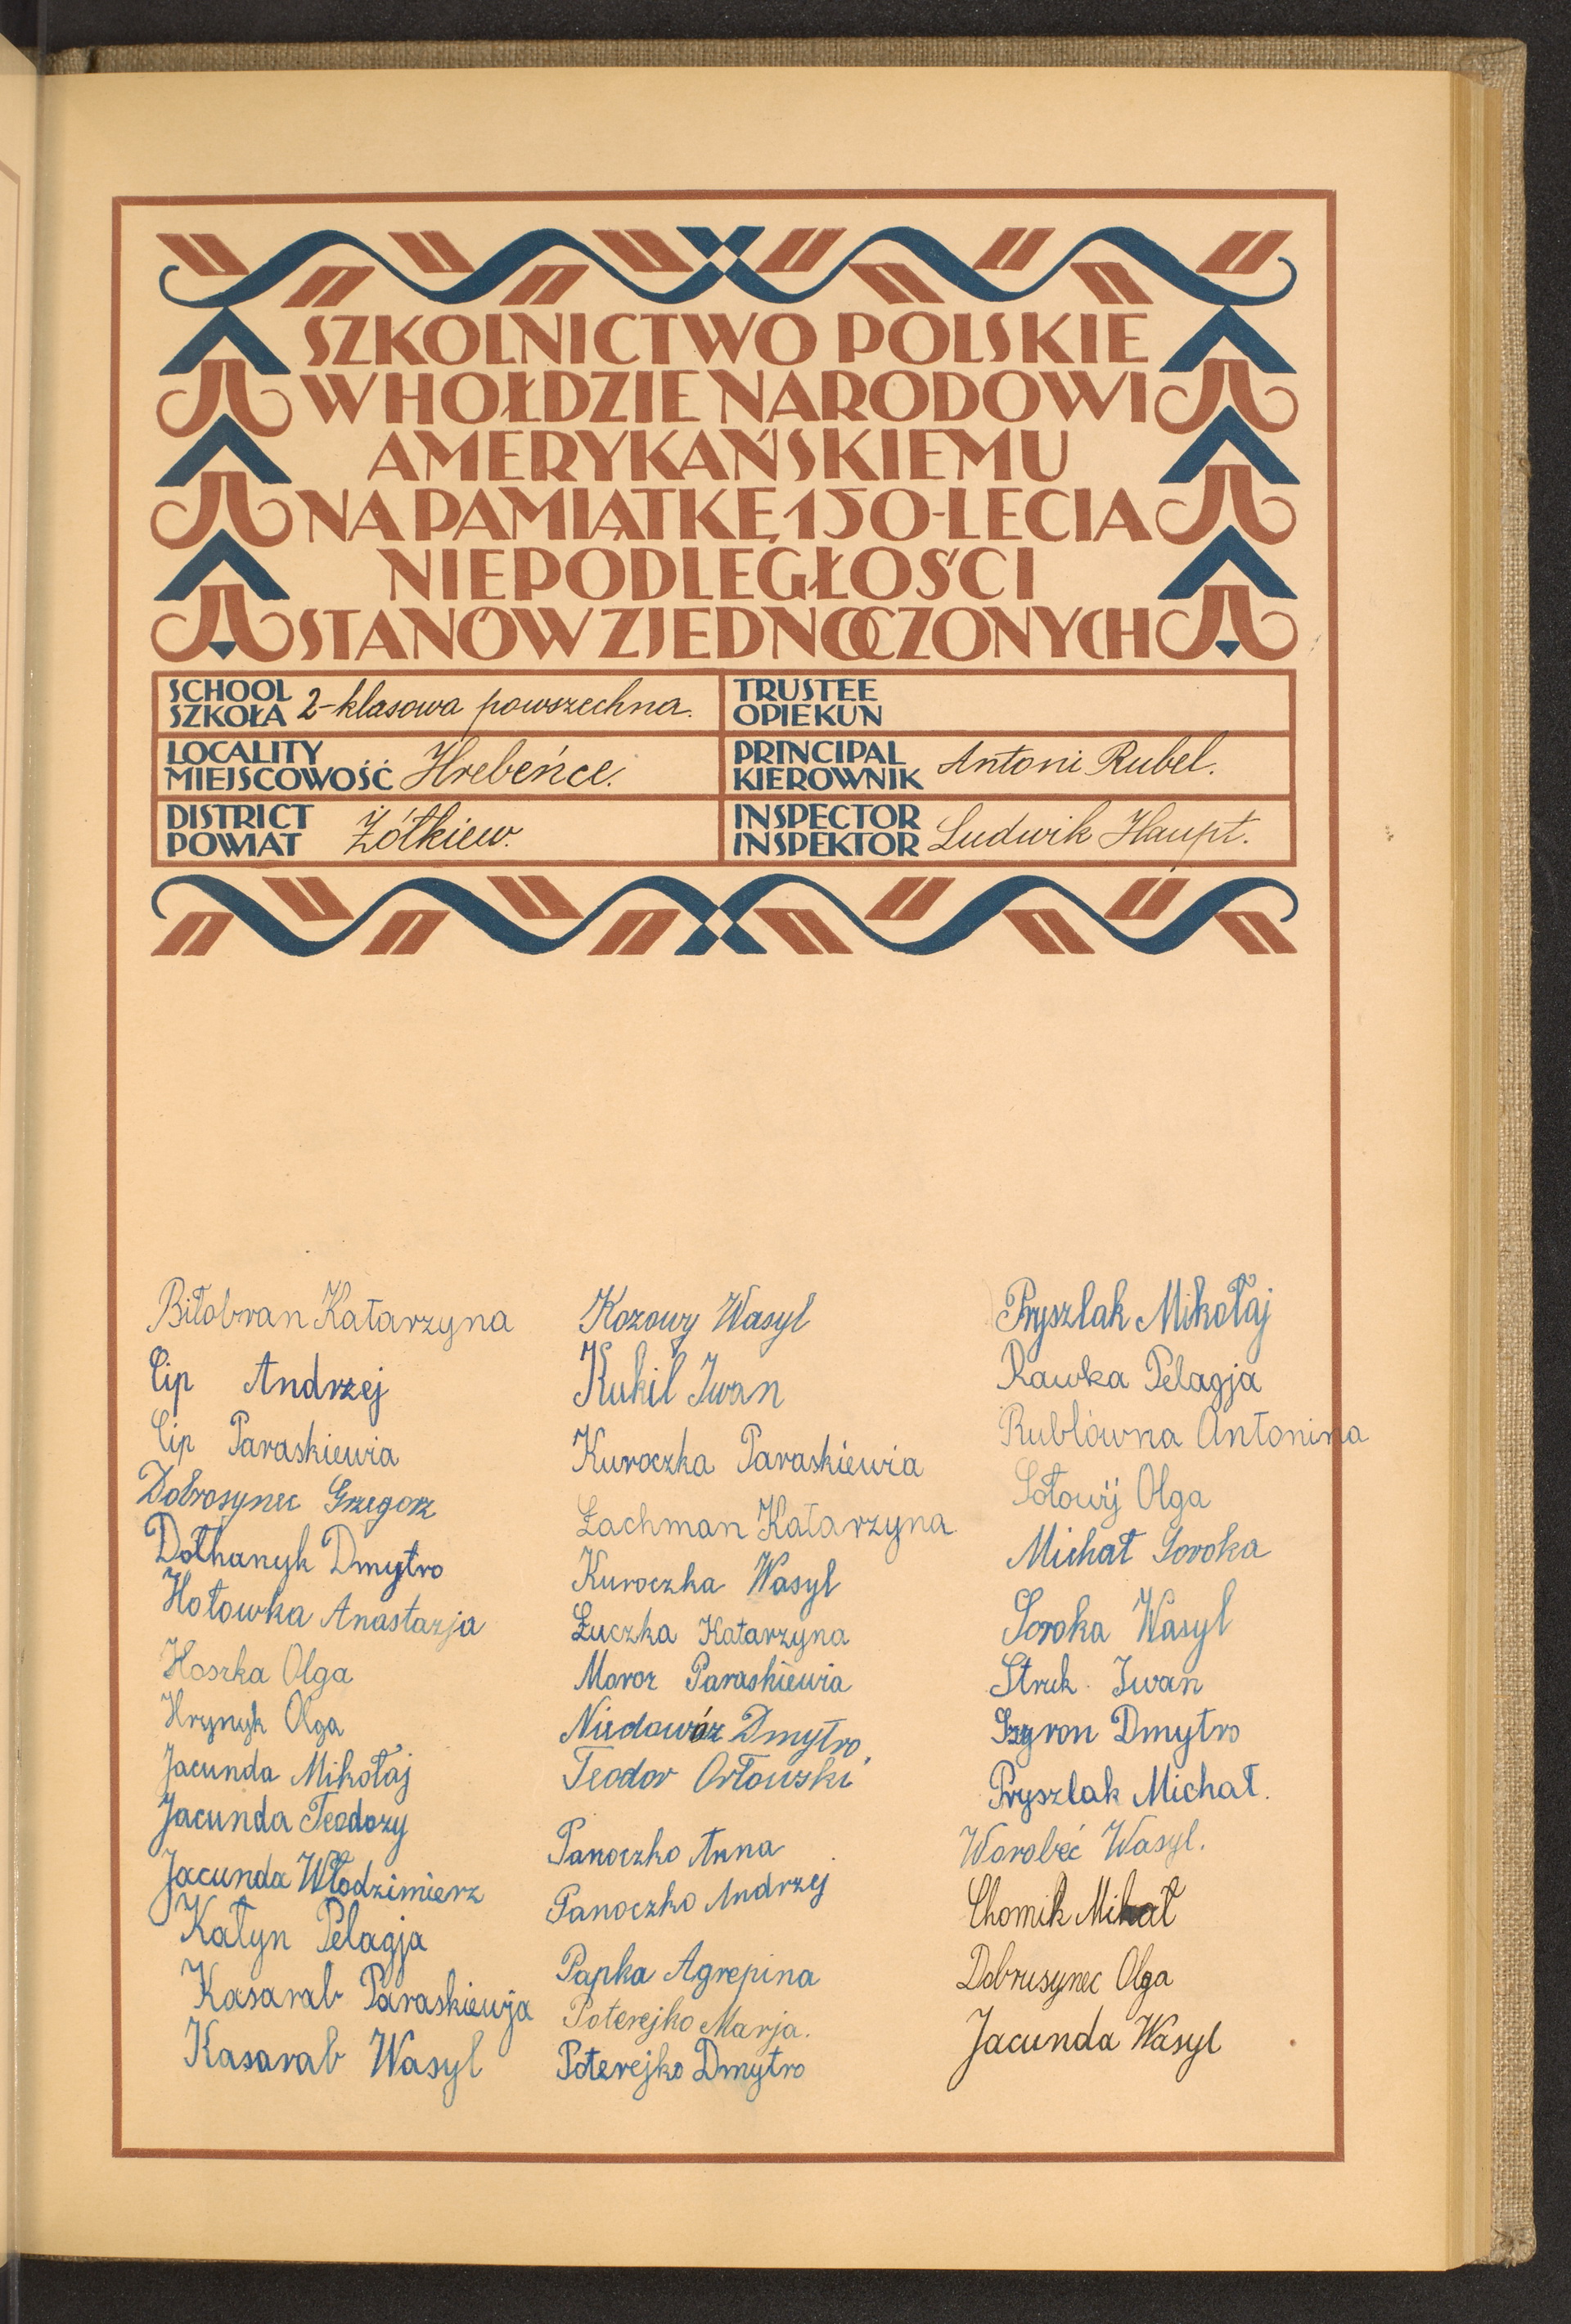 SZKOLNICTWO POLSKIE
W HOŁDZIE NARODOWI
AMERYKAŃSKIEMU
NA PAMIĄTKĘ 150-LECIA
NIEPODLEGŁOŚCI
STANÓW ZJEDNOCZONYCH
SCHOOL
SZKOŁA 2-klasowa powszechna.
TRUSTEE
OPIEKUN
LOCALITY
MIEJSCOWOŚĆ Hrebeńce.
PRINCIPAL
KIEROWNIK Antoni Rubel.
DISTRICT
POWIAT Żółkiew.
INSPECTOR
INSPEKTOR Ludwik Haupt.
Biłobran Katarzyna
Cip Andrzej
Cip Paraskiewia
Dobrosynec Grzegorz
Dołhanyk Dmytro
Hołowka Anastazja
Hoszka Olga
Hrynyk Olga
Jacunda Mikołaj
Jacunda Teodozy
Jacunda Włodzimierz
Kałyn Pelagja
Kasarab Paraskiewja
Kasarab Wasyl
Kozowy Wasyl
Kukil Iwan
Kuroczka Paraskiewia
Łachman Katarzyna
Kuroczka Wasyl
Łuczka Katarzyna
Moroz Paraskiewia
Niedowóz Dmytro
Teodor Orłowski
Panoczko Anna
Panoczko Andrzej
Papka Agrepina
Poterejko Marja.
Poterejko Dmytro
Pryszlak Mikołaj
Rawka Pelagja
Rublówna Antonina
Sołowij Olga
Michał Soroka
Soroka Wasyl
Struk Iwan
Dmytro
Pryszlak Michał.
Worobeć Wasyl.
Chomik Mihał
Dobrusynec Olga
Jacunda Wasyl